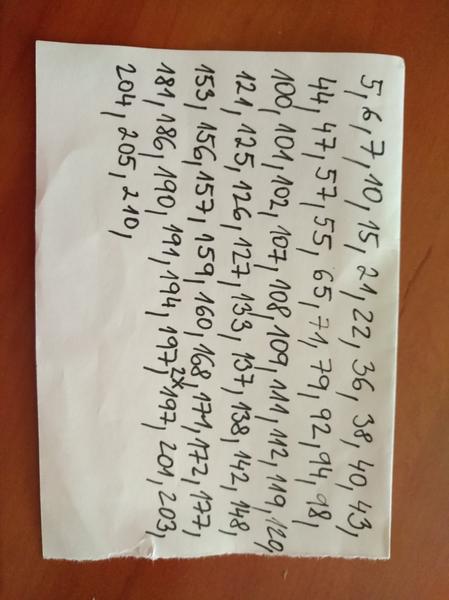 5, 6, 7, 10, 15, 21, 22, 36, 38, 40, 43,
44, 47, 57, 55, 65, 71, 79, 92, 94, 98,
100, 101, 102, 107, 108, 109, 111, 112, 119, 120,
121, 125, 126, 127, 133, 137, 138, 142, 148,
153, 156, 157, 159, 160, 168, 171, 172, 177,
181, 186, 190, 191, 194, 197, 2x 197, 201, 203,
204, 205, 210,